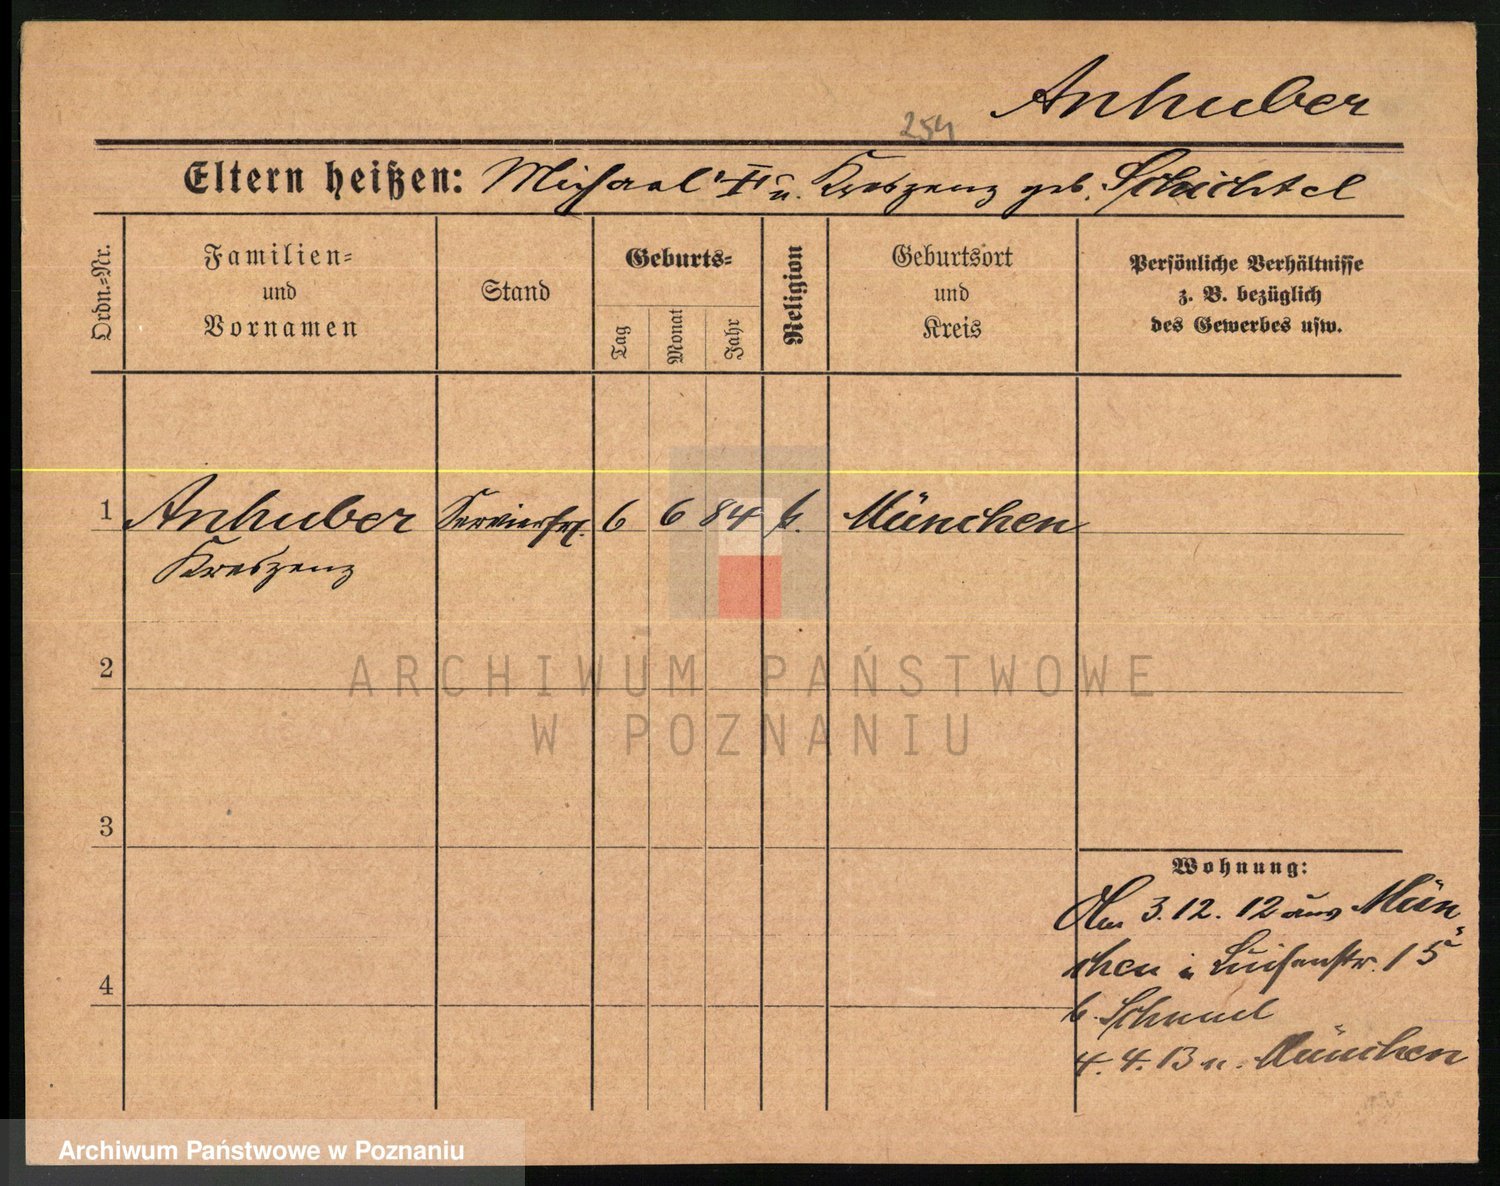 Anhuber
254
Eltern heißen: Michael † u. Kreszenz geb. Schichtel
Ordn.-Nr.
Familien-
und
Vornamen
Stand
Geburts-
Tag
Monat
Jahr
Religion
Geburtsort
und
Kreis
Persönliche Verhältnisse
z. B. bezüglich
des Gewerbes usw.
1 Anhuber Servierfrl. 6 6 84 k. München
Kreszenz
2
ARCHIWUM PAŃSTWOWE
W POZNANIU
3
Wohnung:
Am 3.12.12 aus Mün-
chen n Luisenstr. 15
b. Schmul
4
4.4.13 n. München
Archiwum Państwowe w Poznaniu